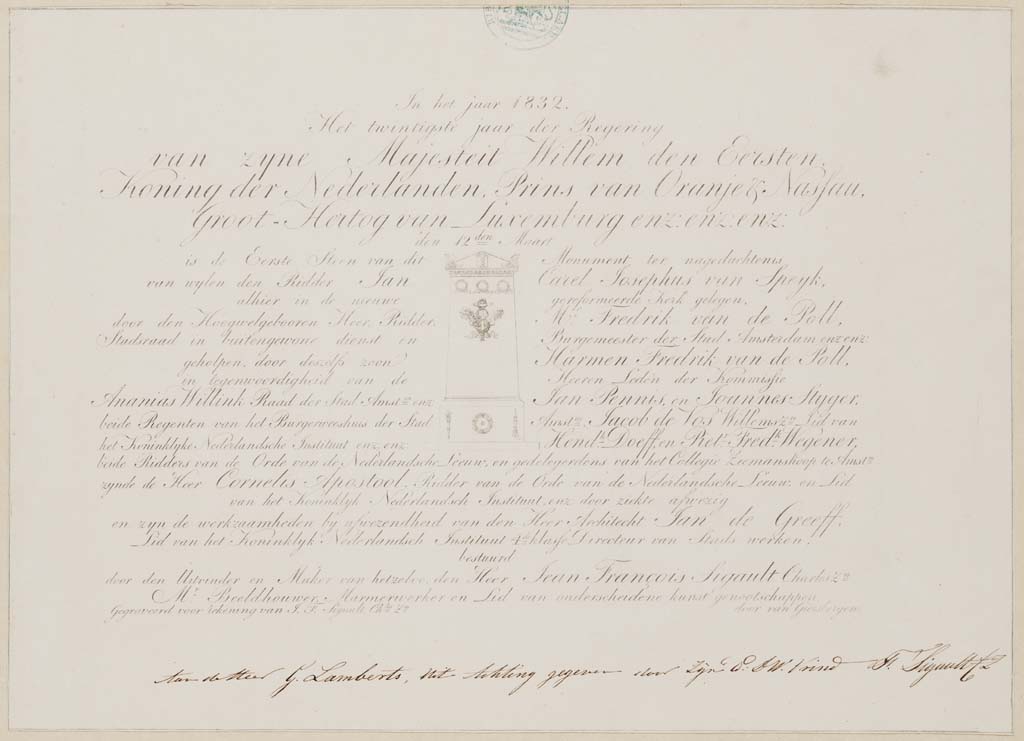 In het jaar 1832.
Het twintigste jaar der Regering
van zyne Majesteit Willem den Eersten,
Koning der Nederlanden, Prins van Oranje & Nassau,
Groot-Hertog van Luxemburg enz: enz: enz:
den 12den Maart
is de Eerste Steen van dit Monument ter nagedachtenis
van wylen den Ridder Jan Carel Josephus van Speyk,
alhier in de nieuwe gereformeerde Kerk gelegen,
door den Hoogwelgebooren Heer, Ridder, Mr. Fredrik van de Poll,
Staatsraad in buitengewone dienst en Burgemeester der Stad Amsterdam enz: enz:
geholpen door deszelfs zoon Harmen Fredrik van de Poll,
in tegenwoordigheid van de Heeren Leden der Kommissie
Ananias Willink Raad der Stad Amstm. enz: Jan Pennis, en Joannes Styger,
beide Regenten van het Burgerweeshuis der Stad Amstm. Jacob de Vos Willemszn. Lid van
het Koninklyke Nederlandsche Instituut enz: enz: Hendk. Doeff, en Piet. Fredk. Wegener,
beide Ridders van de Orde van de Nederlandsche Leeuw, en gedelegerdens van het Collegie Zeemanshoop te Amstm.
zynde de Heer Cornelis Apostool, Ridder van de Orde van de Nederlandsche Leeuw, en Lid
van het Koninklyk Nederlandsch Instituut, enz: door ziekte afwezig
en zyn de werkzaamheden by afwezendheid van den Heer Architecht Jan de Greeff,
Lid van het Koninklyk Nederlandsch Instituut 4de klasse Directeur van Stads werken,
bestuurd
door den Uitvinder en Maker van hetzelve, den Heer Jean François Sigault Charlszn.
Mr. Beeldhouwer, Marmerwerker en Lid van onderscheidene kunst genootschappen
Gegraveerd voor tekening van J. F. Sigault Chs. Zn. door van Giesbergen
Aan de Heer G. Lamberts, uit Achting gegeven door Zijn E: DW: Vrind F. Sigault CZ